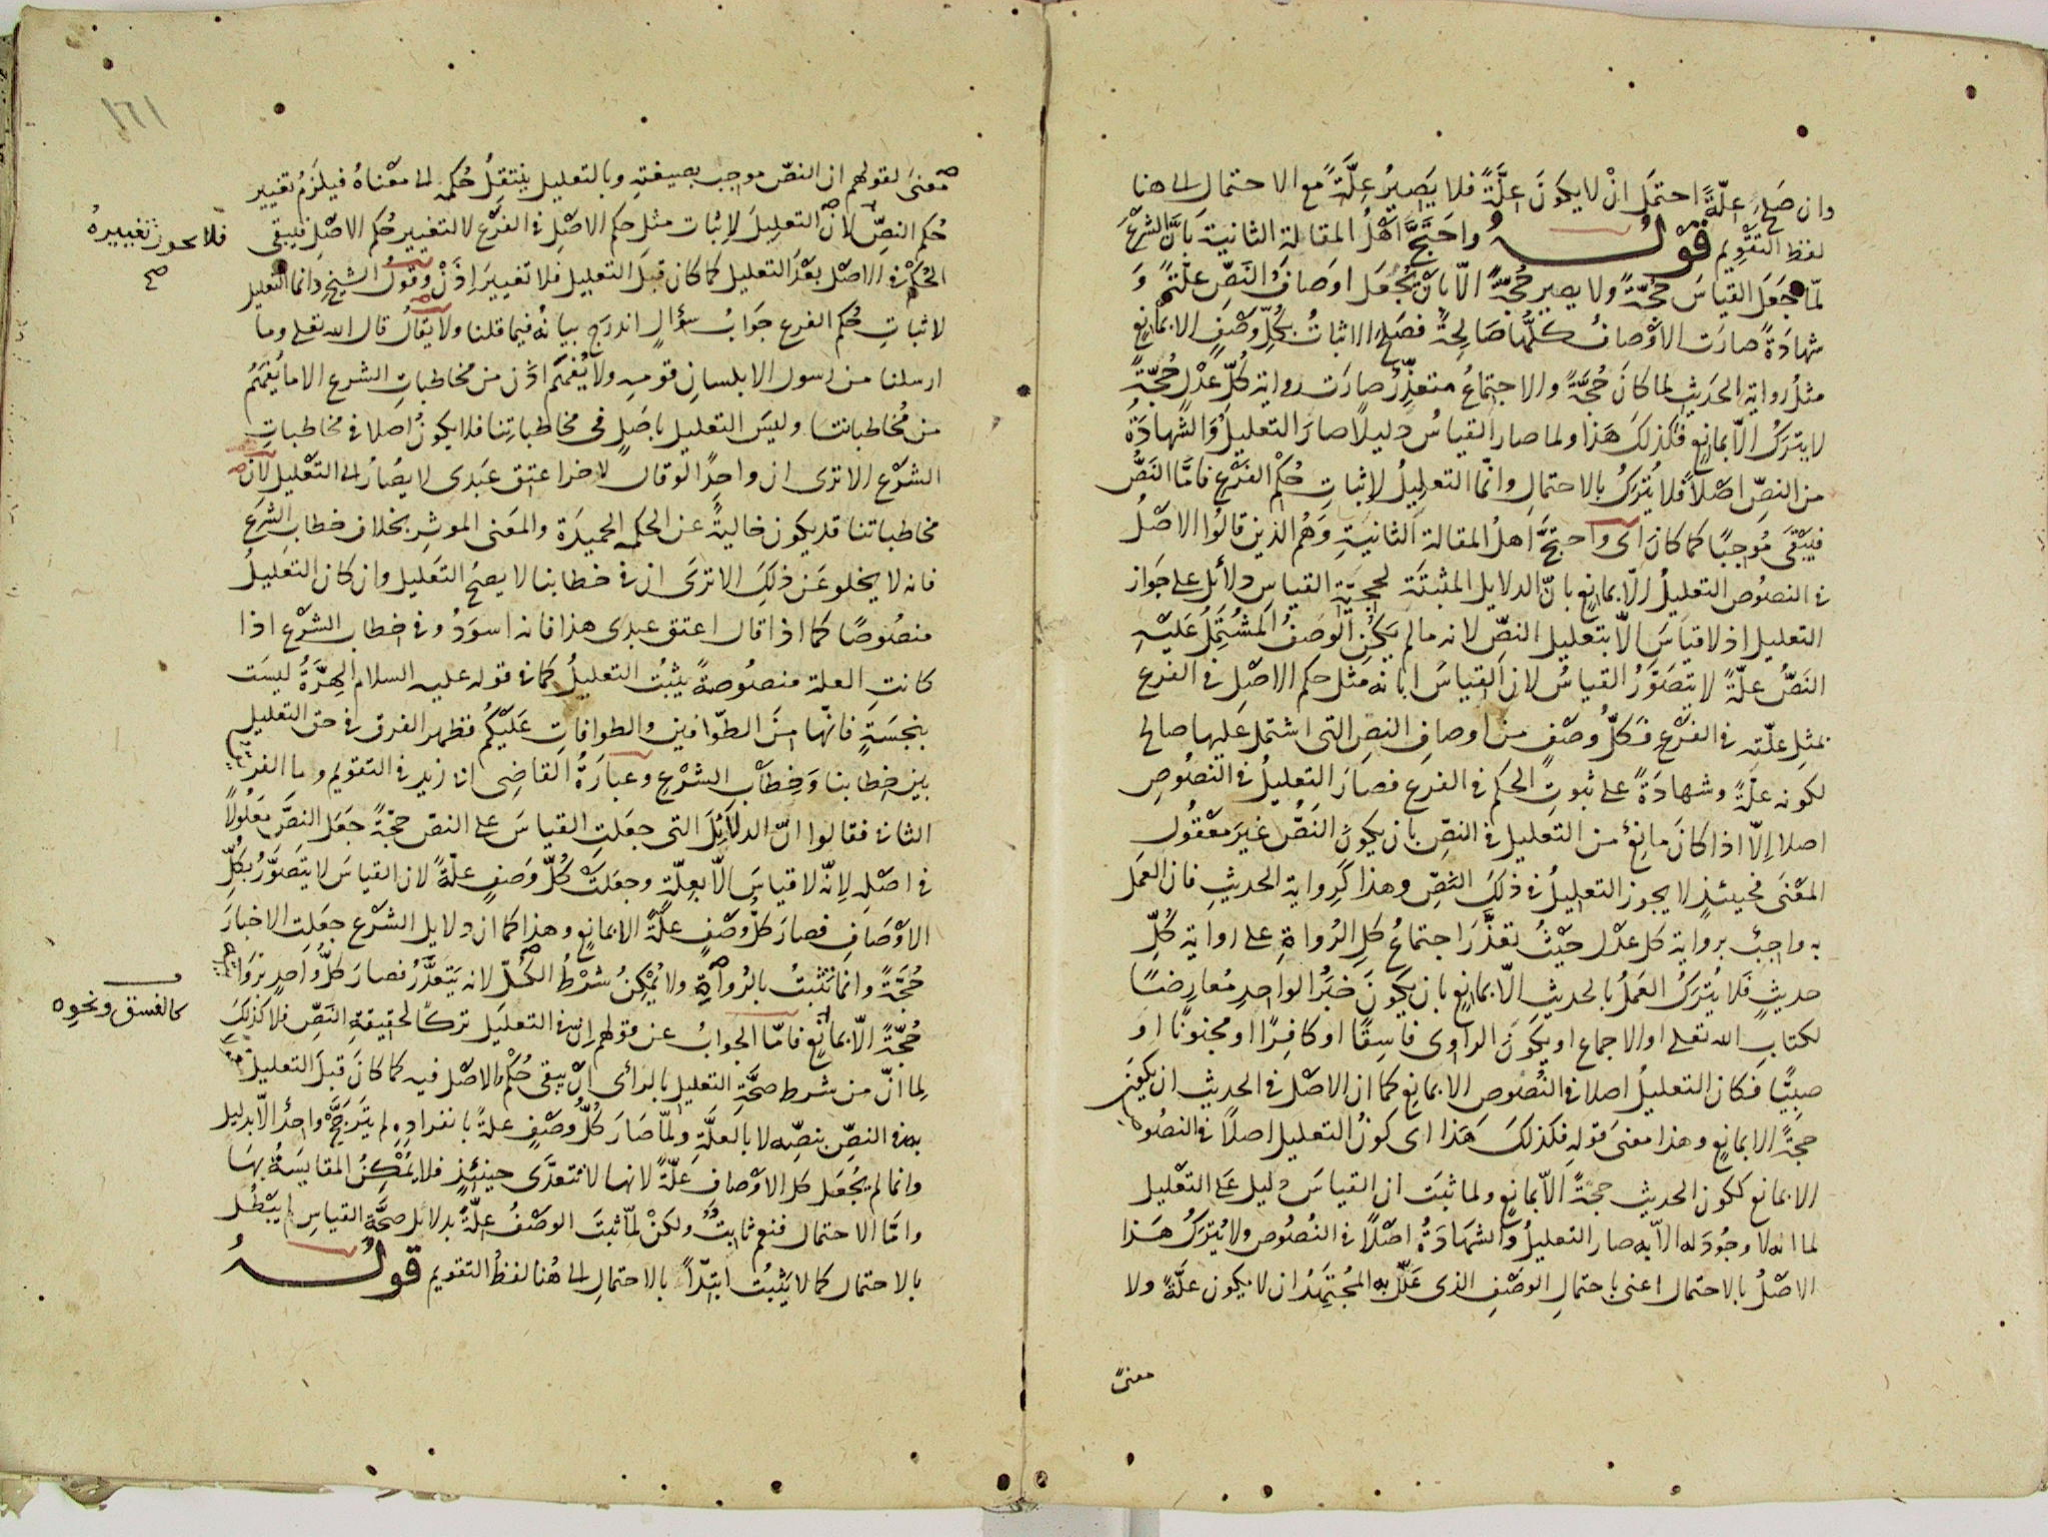 وان صَلَحَ علّةً احتمَل انْ لا يكونَ علَّةً فلا يَصِيرُ علَّةً مع الاحتمال الى هنا
لفظ التقويم قولـــه واحتَجَّ اهْلُ المقالة الثانية بانَّ الشرعَ
لمّا جَعَل القياسَ حُجّةً ولا يصير حُجّةً الّا بانْ يُجْعَل اوصافُ النَصِّ علّةً وَ
شهادَةً صارَت الاوْصافُ كلّها صَالِحةً فصَلح الاثباتُ بكُلِّ وصْفٍ الا بمانعٍ
مثلُ رواية الحَديث لما كانَ حُجَّةً والاجتماعُ متعذِّرٌ صارَت رواية كُلّ عدْل حُجّةً
لا يترَكُ الّا بمانعٍ فكذلكَ هَذا ولما صار القياسُ دليلًا صارَ التعليلُ والشهادَةُ
من النصِّ اصْلًا فلا يُتْرَكُ بالاحتمال وانّما التعليلُ لاثباتِ حُكْم الفَرْع فامَّا النَصُّ
فيَبْقَى مُوجبًا كما كانَ اى واحتجَّ اهلُ المقالة الثانيَةِ وَهُم الذين قالُوا الاصْلُ
فى النصُوص التعليلُ الّا بمانعٍ بانّ الدلايل المثبتَة لحجيّة القياسِ دلائل على جَواز
التعليل اذ لا قياسَ الّا بتعليل النصِّ لانه ما لم يَكُنِ الوَصفُ المشتمِلُ عَلَيْه
النَصُّ علّةً لا يتصَوّرُ القياسُ لان القياسَ ابانه مثل حكم الاصْلِ فى الفرع
بمثلِ علّته فى الفَرْع فكلُّ وصْفٍ من اوصافِ النصِ التى اشتمل عليها صالح
لكونه علّةً وشهادَةً على ثبوتِ الحكم فى الفرع فصارَ التعليلُ فى النصُوصِ
اصلا اِلّا اذا كانَ مانِعٌ من التعليل فى النصِّ بان يكونَ النَصُّ غيرَ معْقُولِ
المعْنَى فحينئذٍ لا يجوز التعليلُ فى ذلكَ النصِّ وهذا كرِواية الحديثِ فان العَمَل
به واجبٌ برواية كل عدْل حَيْثُ تعذَّرَ اجتماعُ كل الرُواةِ على رواية كُلِّ
حديثٍ فَلا يُترَكُ العَمَلُ بالحديثِ الّا بمانعٍ بان يكونَ خبَرُ الواحِدِ مُعارِضًا
لكتابِ الله تعلى او الاجماع او يكونَ الرَاوى فاسِقًا او كافِرًا او مجنونًا او
صبيًّا فكان التعليلُ اصلا فى النُصُوص الا بمانعٍ كما ان الاصْل فى الحديث ان يكون
حجةً الا بمانعٍ وهذا معنى قوله فكذلكَ هَذا اى كونُ التعليل اصلًا فى النصُوص
الا بمانع ككون الحديث حجةً الّا بمانعٍ ولما ثبَتَ ان القياسَ دليل على التعْليل
لما انه لا وجُودَ له الا به صار التعليلُ والشهادَةُ اصْلًا فى النُصُوص ولا يُترَكُ هَذا
الاصْلُ بالاحتمال اعنى باحتمالِ الوصْفِ الذى عَلّل به المجْتَهِدُ ان لا يكون علّةً ولا
معنىً
١٦١
معْنىً لقولهم ان النصّ موجب بصيغتهِ وبالتعليل ينتقِلُ حُكمه الى معْناهُ فيلزَمُ تغيير
حُكم النصِّ لانّ التعليلَ لإثبات مثل حكم الاصْل فى الفرْع لا لتغيير حُكم الاصْلِ فيبقى
فلا يجوز تغييرهُ
صح
الحُكمُ فى الاصْل بعْدَ التعليل كما كان قبلَ التعليل فلا تغييرَ اِذَنْ وقولُ الشيخ وانما التعليل
لاثباتِ حُكم الفرع جَوابُ سؤالٍ اندرج بيانُه فيما قلنا ولا يقالُ قال الله تعلى وما
ارسلنا من رسول الا بلسانِ قومه ولا يُفهَم اذن من مخاطباتِ الشرع الا ما يُفهَمُ
من مُخاطباتنا وليسَ التعليل باصْلٍ فى مخاطباتِنا فلا يكونُ اصلا فى مخاطباتِ
الشرْع الا ترى ان واحدًا لو قالَ لاخر اعتِق عبدى لا يصُارُ الى التعْليل لانّ
مخاطباتنا قد يكون خاليةً عن الحكمه الحميدَة والمَعنى الموثِر بخلاف خطاب الشرع
فانه لا يخلو عَن ذلِكَ الا ترَى ان فى خطابنا لا يصحُ التَعليل وان كان التعليلُ
منصُوصًا كما اذا قال اعتق عبدى هذا فانه اسوَدُ وفى خطاب الشرْع اذا
كانتِ العلة منصُوصةً يثبُتُ التعليلُ كما فى قوله عليه السلام الهِرَّةُ ليسَت
بنجسَةٍ فانّها منَ الطوّافين والطوافاتِ عَلَيْكُم فظهر الفرق فى حق التعليل
بين خطابنا وَخِطاْبِ الشرْع وعبارَةُ القاضى ابى زيد فى التقويم واما الفريق
الثانى فقالوا انّ الدلائِلَ التى جعَلت القياسَ على النصّ حجّةً جعَل النصَّ معلُولًا
فى اصْلِه لانّه لا قياسَ الّا بعلّةٍ وجعَلتْ كُلَّ وَصَفٍ علّةً لان القياسَ لا يتصَوّرُ بكُلّ
الاوْصَافِ فصارَ كلُّ وصْفٍ علّةً الا بمانعٍ وهذا كما ان دلايل الشرْع جعَلتِ الاخبارَ
حُجّةً وانما تثبتُ بالرُواةِ ولا يُمْكِنُ شرْطُ الكُلّ لانه يَتعذَّرُ فصارَ كلُّ واحدٍ برَوايته
كالفسق ونحوه
حُجّةً الّا بمانعٍ فامّا الجوابُ عن قولهم ان فى التعليل تركًا لحقيقةِ النَصِّ فلا كذلكَ
لِما انّ من شرط صحَّةِ التعليل بالرأى انْ يبقى حُكْمُ الاصْل فيه كما كانَ قبلَ التعليل
بهذى النصِّ بنصِّه لا بالعلَّةِ ولمّا صَارَ كُلُّ وَصْفٍ علةً بانفرادِهِ لم يَتَرجَّحْ واحدٌ الّا بدليل
وانما لم يُجْعَل كل الاوْصافِ علّةً لانها لا تتعَدَّى حينئذٍ فلا يُمْكِنُ المقايسَةُ بهَا
وامّا الاحتمال فنعم ثابتٌ ولكنْ لمّا ثبتَ الوصْفُ علّةً بدلايل صحَّةِ القياسِ لم يَبْطُل
بالاحتمال كما لا يَثبُت ابتِداً بالاحتمالِ الى هُنا لفظُ التقويم قولـــه